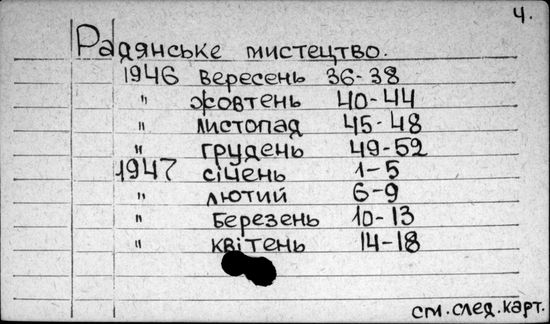 4.
Радянське мистецтво.
1946 вересень 36-38
" жовтень 40-44
" листопад 45-48
" грудень 49-52
1947 січень 1-5
" лютий 6-9
" березень 10-13
" квітень 14-18
см. след. карт.